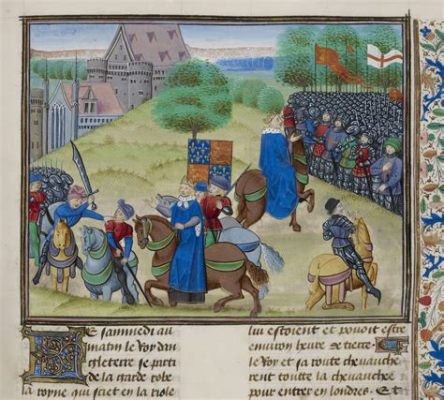 LE samedi au
matin le Roy dan
gleterre se parti
de la garde robe
la royne qui siet en la riole
lui estoient et pouoit estre
enuiron heure de tierce
le Roy et sa route cheuauche
rent toutte la cheuauchee
pour entrer en londres. Et